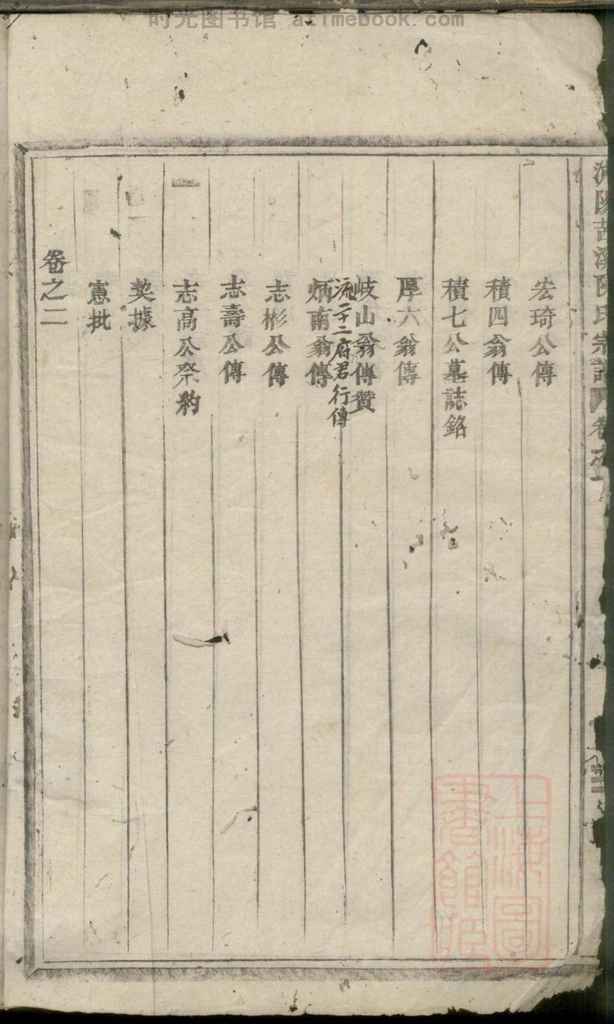 时光图书馆 atimebook.com
宏琦公傳
積四翁傳
積七公墓誌銘
厚六翁傳
岐山翁傳贊
流二十二府君行傳
炳南翁傳
志彬公傳
志壽公傳
志高公祭豹
契據
憲批
卷之二
上海圖書館